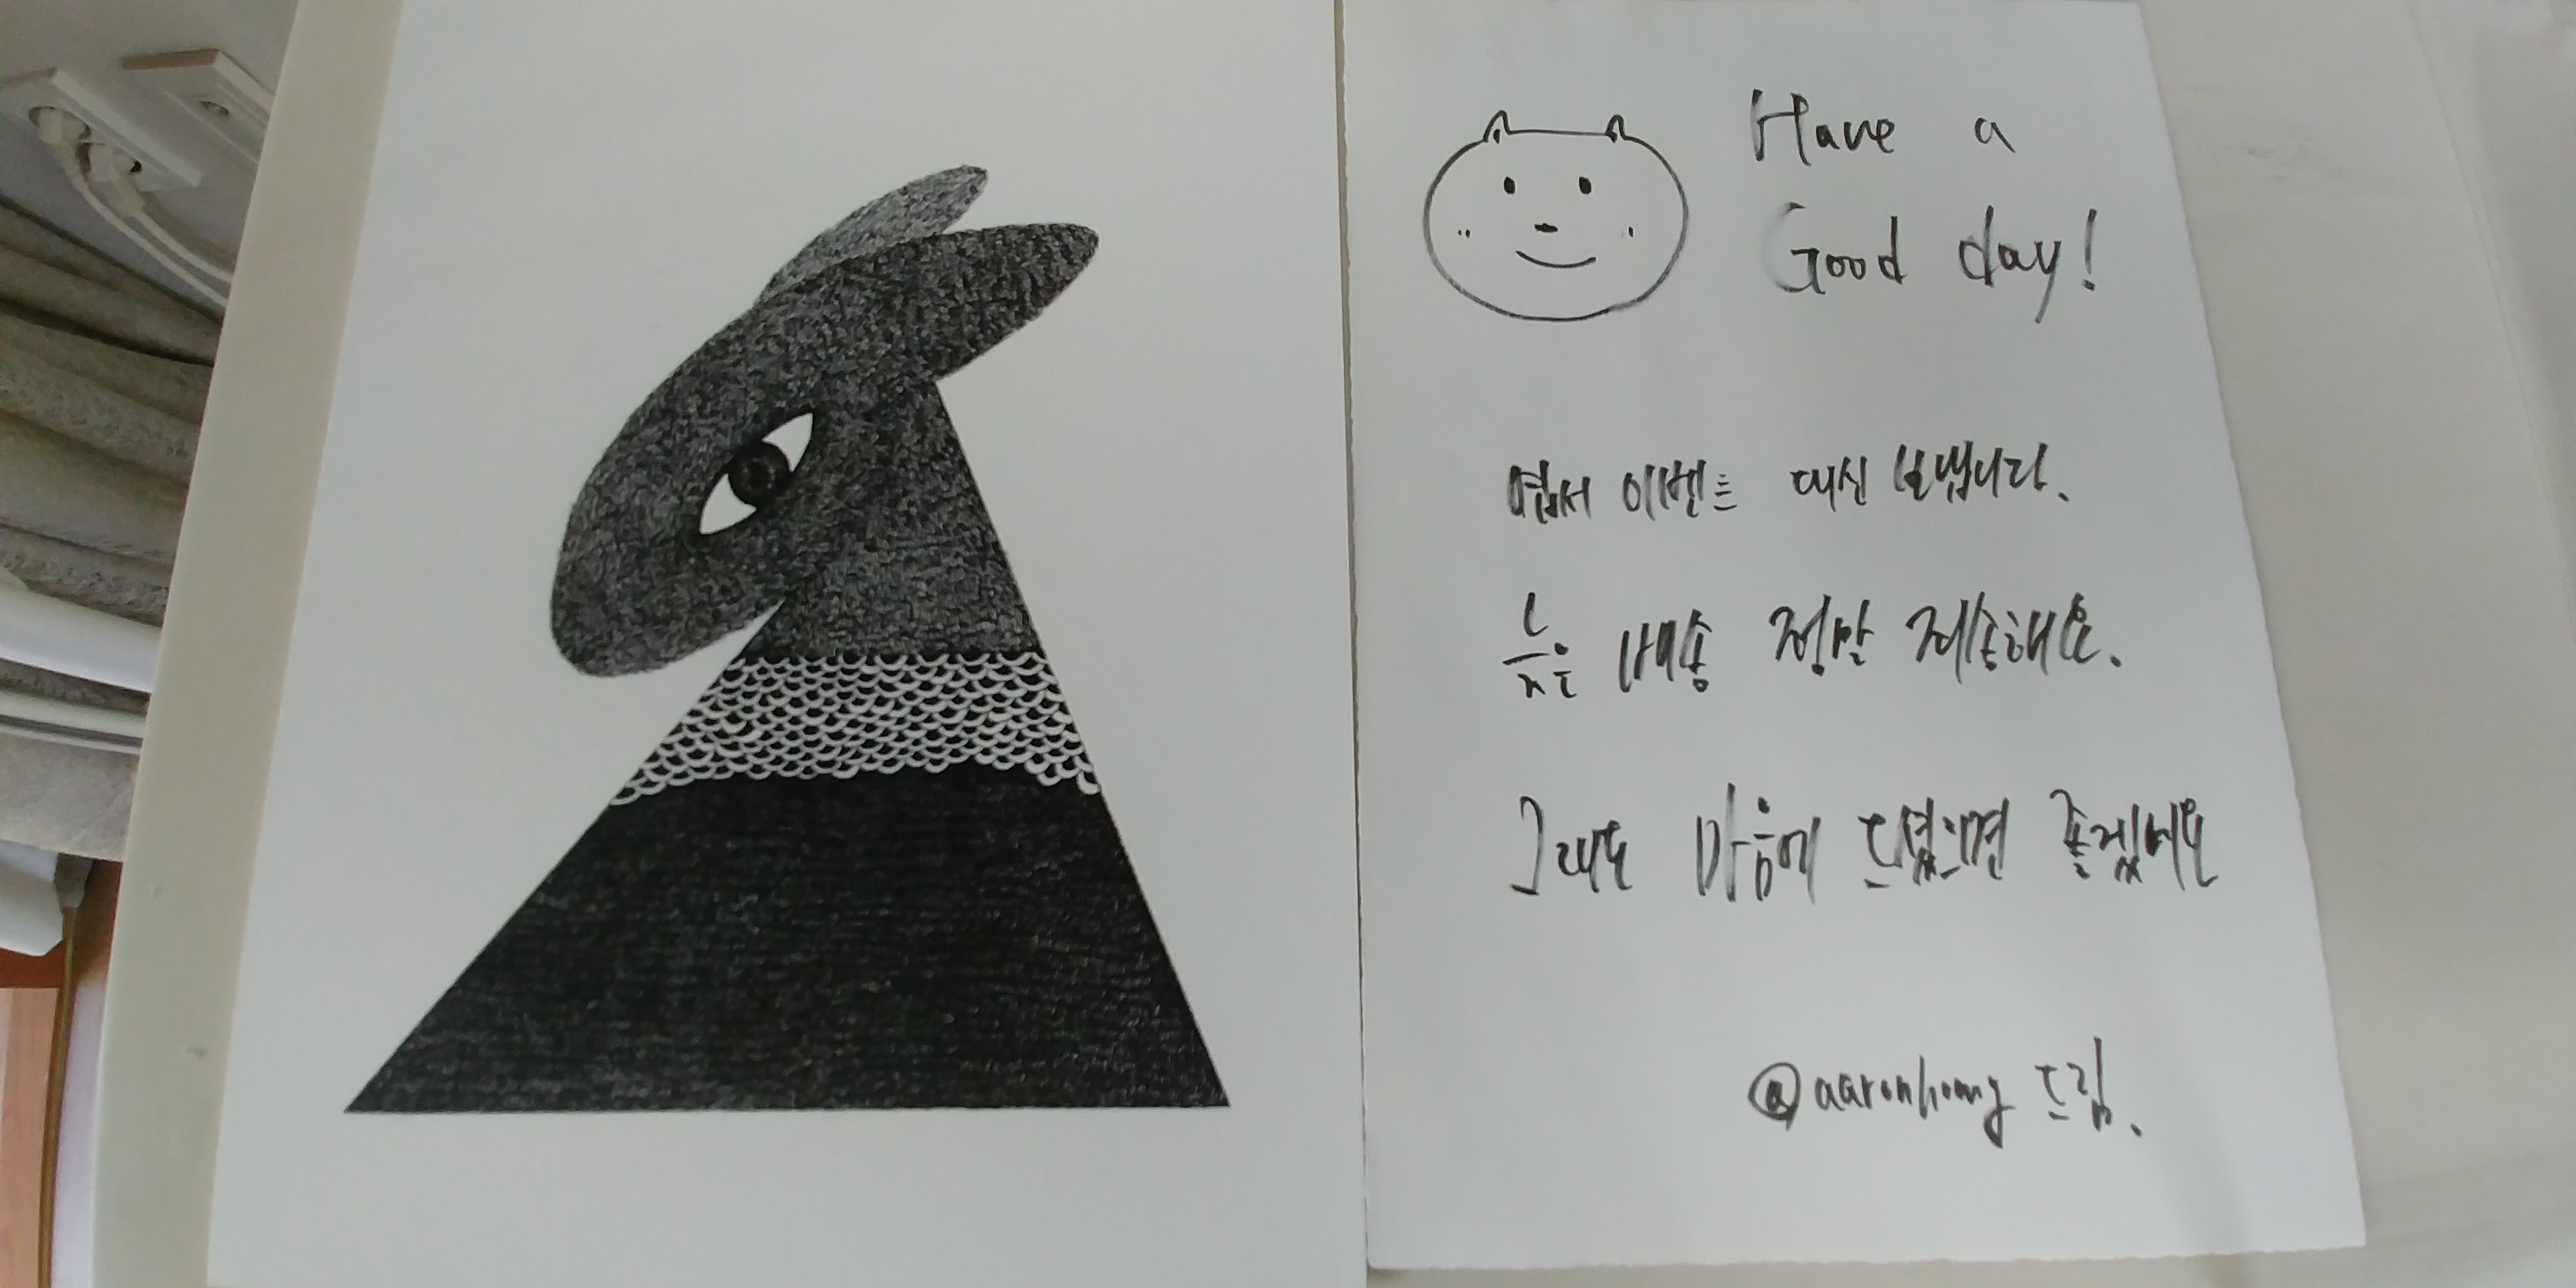 Have a
Good day!
엽서 이벤트 대신 보냅니다.
늦은 배송 정말 죄송해요.
그래도 마음에 드셨으면 좋겠네요
@aaronhong 드림.